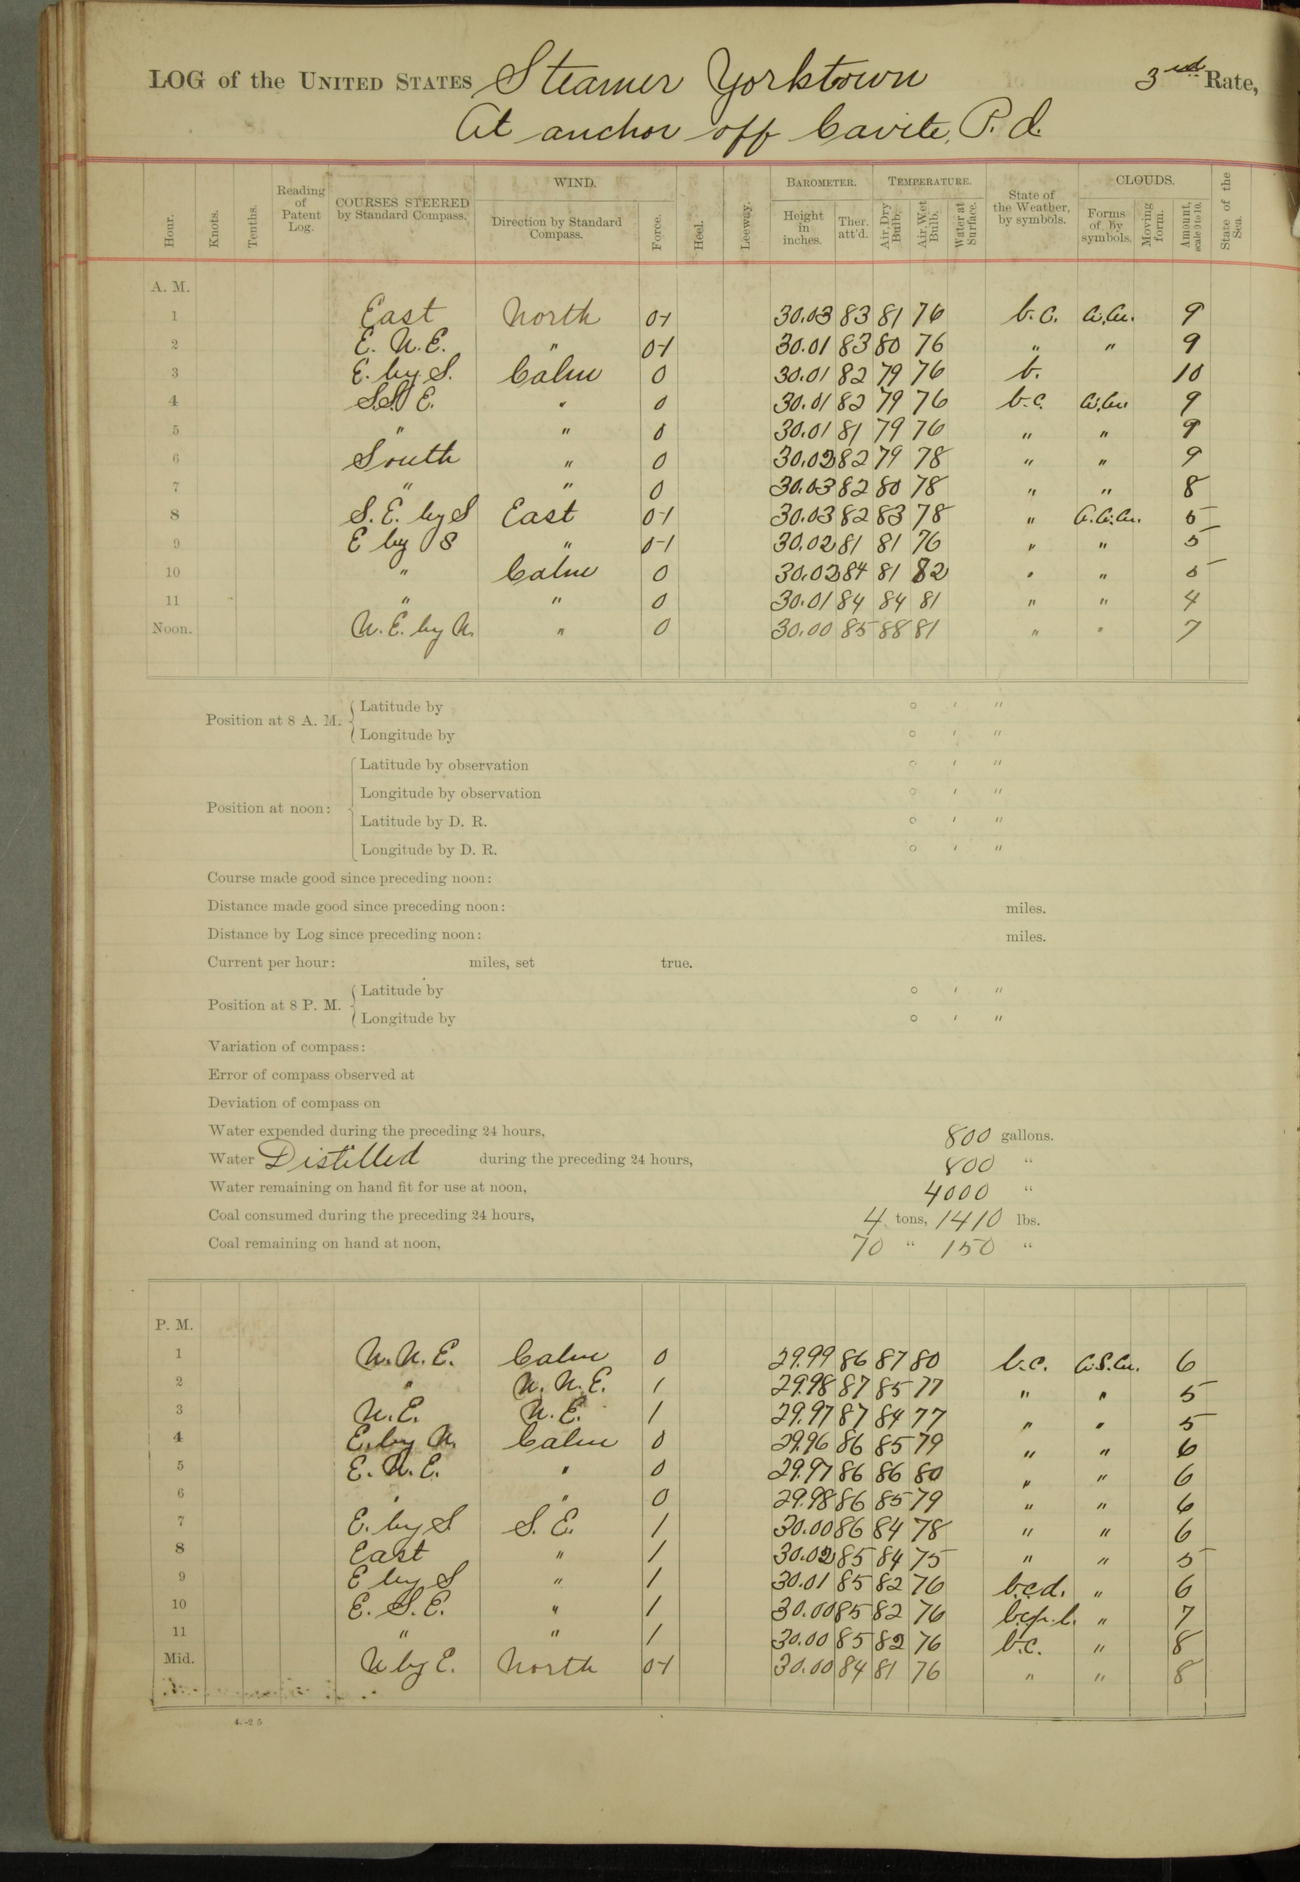 LOG of the UNITED STATES Steamer Yorktown 3rd Rate,
At anchor off Cavite, P. I.
Hour. Knots. Tenths. Reading of Patent Log. COURSES STEERED by Standard Compass. WIND. Direction by Standard Compass. Force. Heel. Leeway. BAROMETER. Height in inches. Ther. att'd. TEMPERATURE. Air, Dry Bulb. Air, Wet Bulb. Water at Surface. State of the Weather, by symbols. CLOUDS. Forms of, by symbols. Moving form. Amount, scale 0 to 10. State of the Sea.
A. M.
1 East North 0-1 30.03 83 81 76 b.c. a.cu. 9
2 E. N.E. " 0-1 30.01 83 80 76 " " 9
3 E. by S. Calm 0 30.01 82 79 76 b. 10
4 S.S. E. " 0 30.01 82 79 76 b.c. a.cu. 9
5 " " 0 30.01 81 79 76 " " 9
6 South " 0 30.02 82 79 78 " " 9
7 " " 0 30.03 82 80 78 " " 8
8 S. E. by S East 0-1 30.03 82 83 78 " 5
9 E by S " 0-1 30.02 81 81 76 " " 5
10 " Calm 0 30.02 84 81 82 " " 5
11 " " 0 30.01 84 84 81 " " 4
Noon. N. E. by N. " 0 30.00 85 88 81 " " 7
Position at 8 A. M. Latitude by ° ' "
Longitude by ° ' "
Position at noon: Latitude by observation ° ' "
Longitude by observation ° ' "
Latitude by D. R. ° ' "
Longitude by D. R. ° ' "
Course made good since preceding noon:
Distance made good since preceding noon: miles.
Distance by Log since preceding noon: miles.
Current per hour: miles, set true.
Position at 8 P. M. Latitude by ° ' "
Longitude by ° ' "
Variation of compass:
Error of compass observed at
Deviation of compass on
Water expended during the preceding 24 hours, 800 gallons.
Water Distilled during the preceding 24 hours, 800 "
Water remaining on hand fit for use at noon, 4000 "
Coal consumed during the preceding 24 hours, 4 tons, 1410 lbs.
Coal remaining on hand at noon, 70 " 150 "
P. M.
1 N. N. E. Calm 0 29.99 86 87 80 b.c. a.S.cu. 6
2 " N. N. E. 1 29.98 87 85 77 " " 5
3 N. E. N. E. 1 29.97 87 84 77 " " 5
4 E. by N. Calm 0 29.96 86 85 79 " " 6
5 E. N. E. " 0 29.97 86 86 80 " " 6
6 " " 0 29.98 86 85 79 " " 6
7 E. by S. S. E. 1 30.00 86 84 78 " " 6
8 East " 1 30.02 85 84 75 " " 5
9 E by S " 1 30.01 85 82 76 b.c.d. " 6
10 E. S. E. " 1 30.00 85 82 76 " 7
11 " " 1 30.00 85 82 76 b.c. " 8
Mid. N by E. North 0-1 30.00 84 81 76 " " 8
4.-25